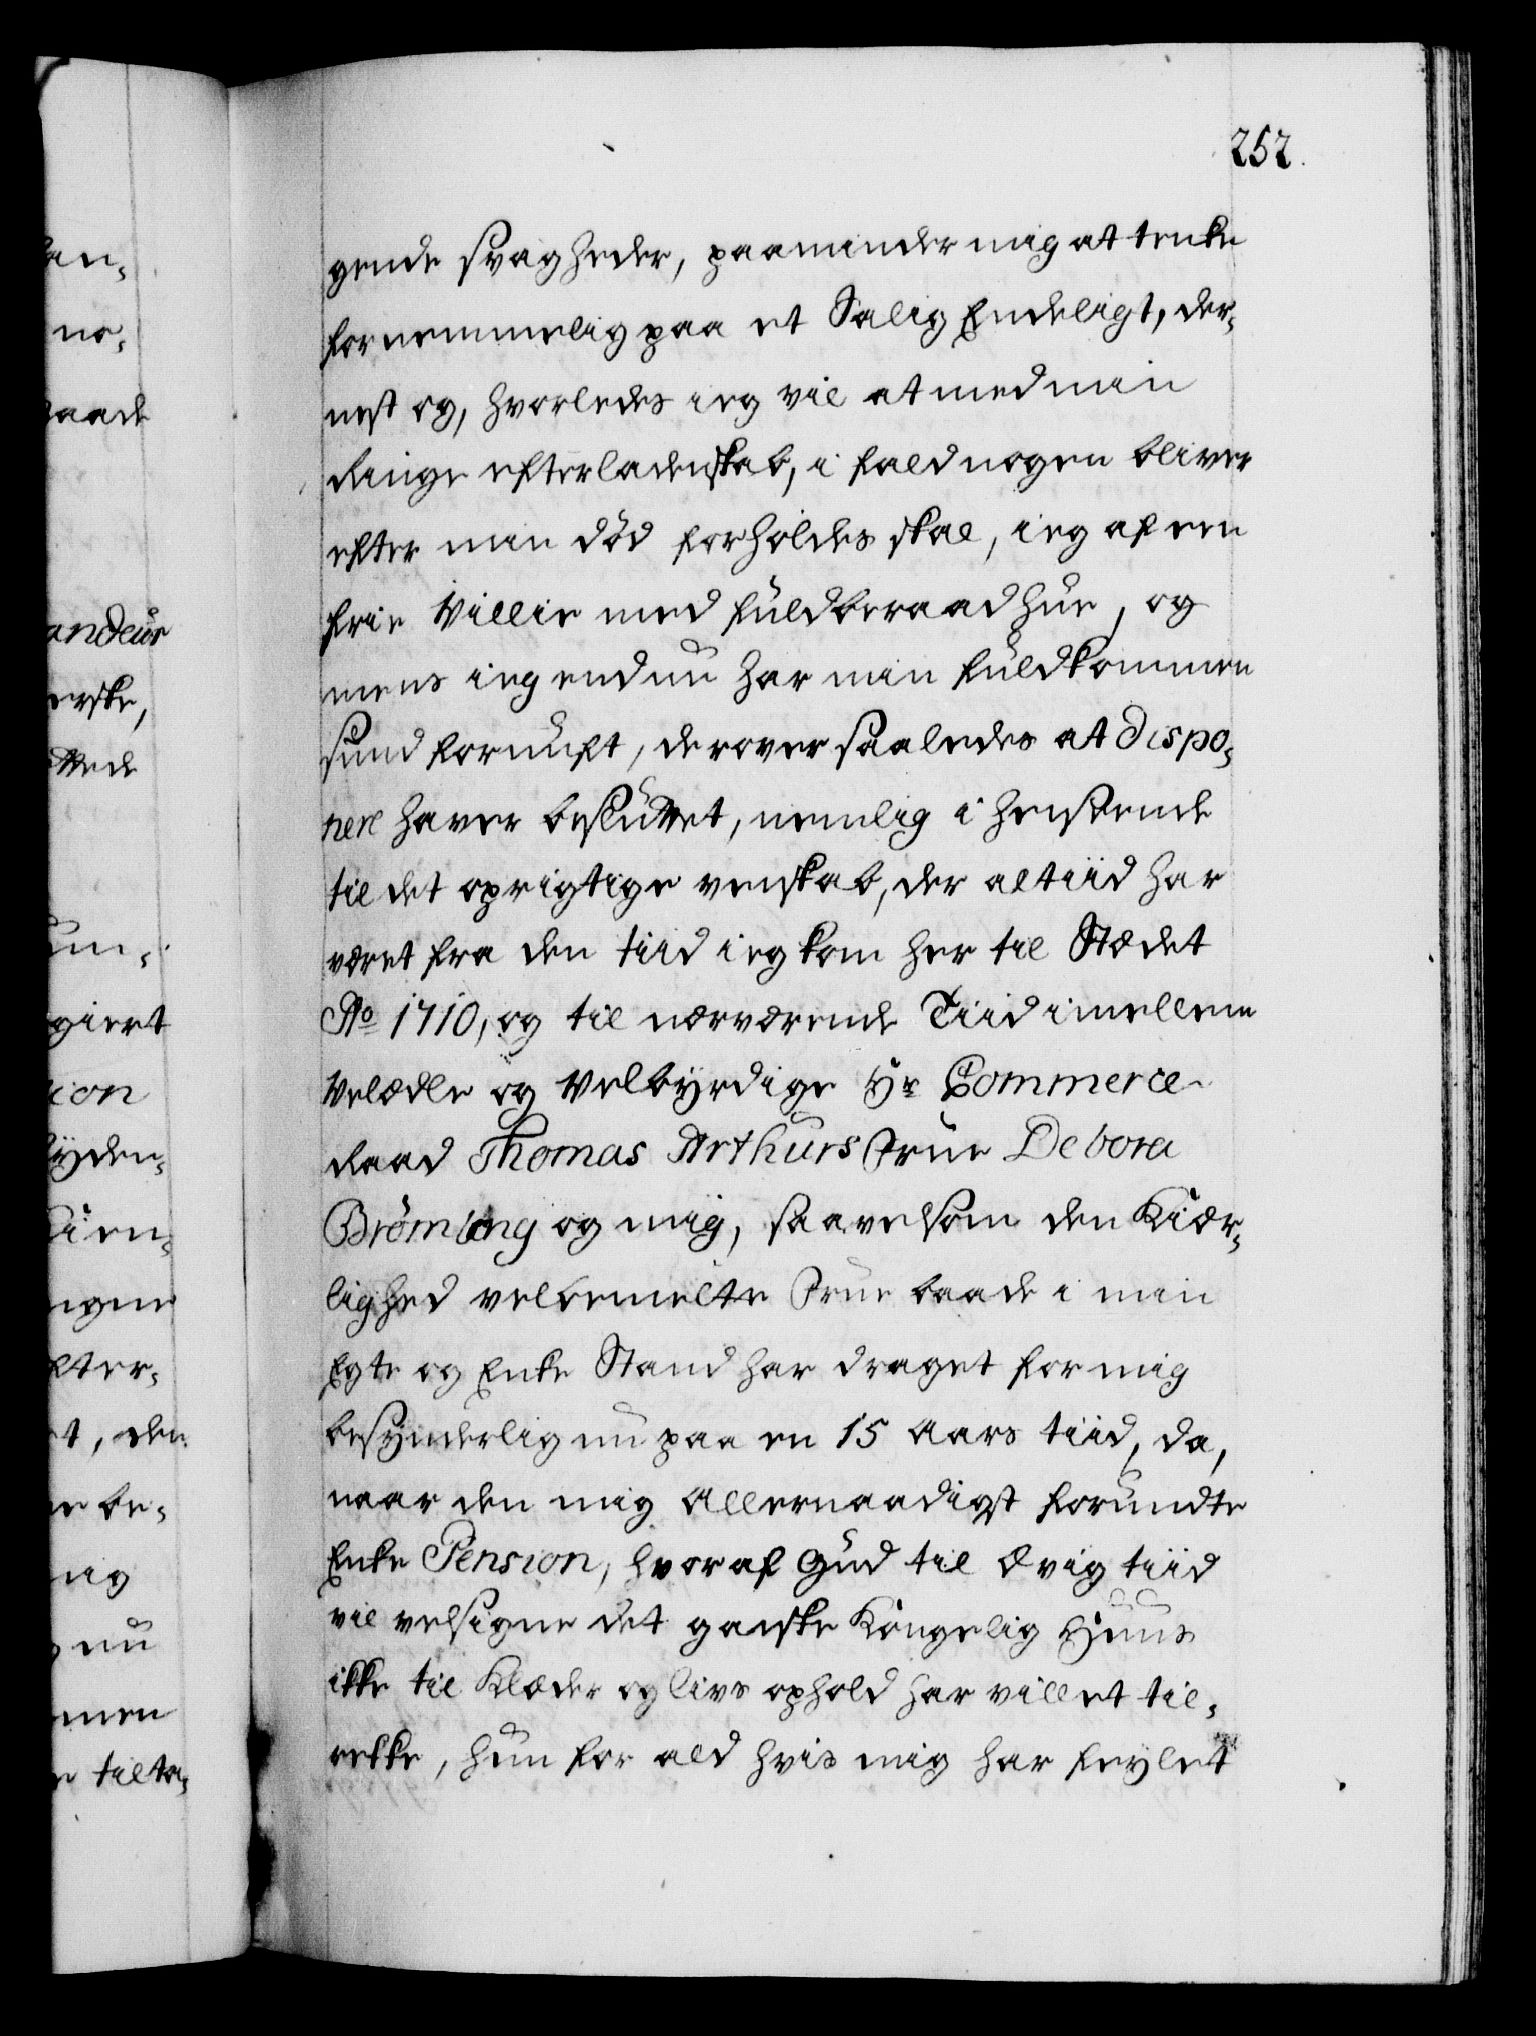 252.
gende svagheder, paaminder mig at tenke
fornemmelig paa et Salig Endeligt, der-
nest og, hvorledes ieg vil at med min
Ringe efterladenskab, i fald nogen bliver
efter min död forholdes skal, ieg af en
frie Villie med fuldberaad hue, og
mens ieg endnu har min fuldkommen
sund fornuft, derover saaledes at dispo-
nere haver besluttet, nemlig i henseende
til det oprigtige venskab, der altiid har
været fra den tiid ieg kom her til Stædet
Ao 1710, og til nærværende Tiid imellem
Velædle og Velbyrdige Hr Commerce-
Raad Thomas Arthurs Frue Debora
Brömling og mig, saavelsom den Kiær-
lighed velbemelte Frue baade i min
Egte og Enke Stand har draget for mig
besynderlig nu paa en 15 Aars tiid, da,
naar den mig Allernaadigst forundte
Enke Pension, hvoraf Gud til Ævig tiid
vil velsigne det ganske Kongelig Huus
ikke til Klæder og livs ophold har villet til-
rekke, hun for ald hvis mig har feylet